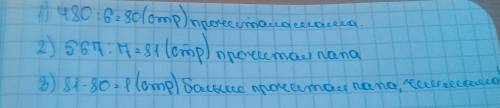 1) 480:6=80(стр) прочитала мама.
2) 567:7=81(стр) прочитал папа
3) 81-80=1(стр) больше прочитал папа, чем мама